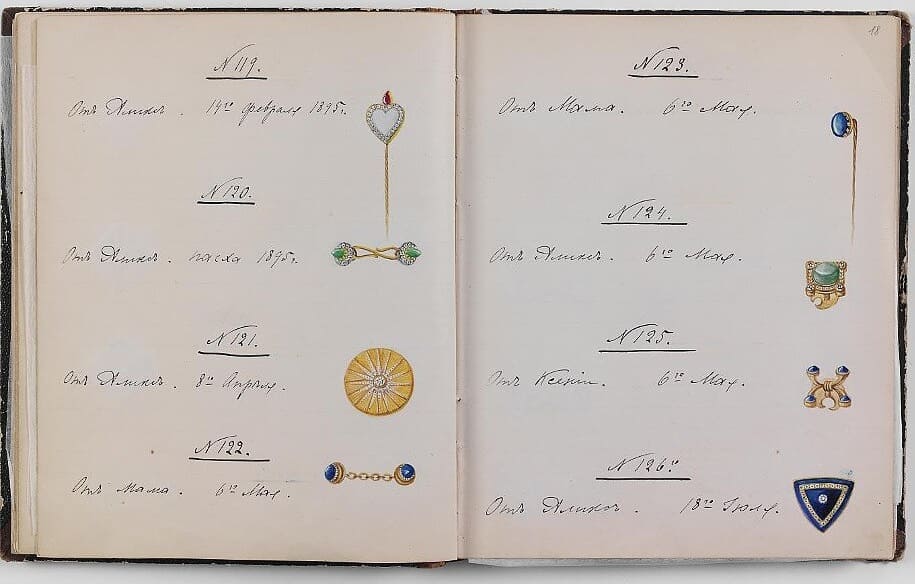 N 119.
Отъ Аликсъ. 14го февраля 1895г.
N 120.
Отъ Аликсъ. пасха 1895г.
N 121.
Отъ Аликсъ. 8го Апрѣля.
N 122.
Отъ Мама. 6го Мая.
18
N 123.
Отъ Мама. 6го Мая.
N 124.
Отъ Аликсъ. 6го Мая.
N 125.
Отъ Ксеніи. 6го Мая.
N 126й
Отъ Аликсъ. 18го Іюля.